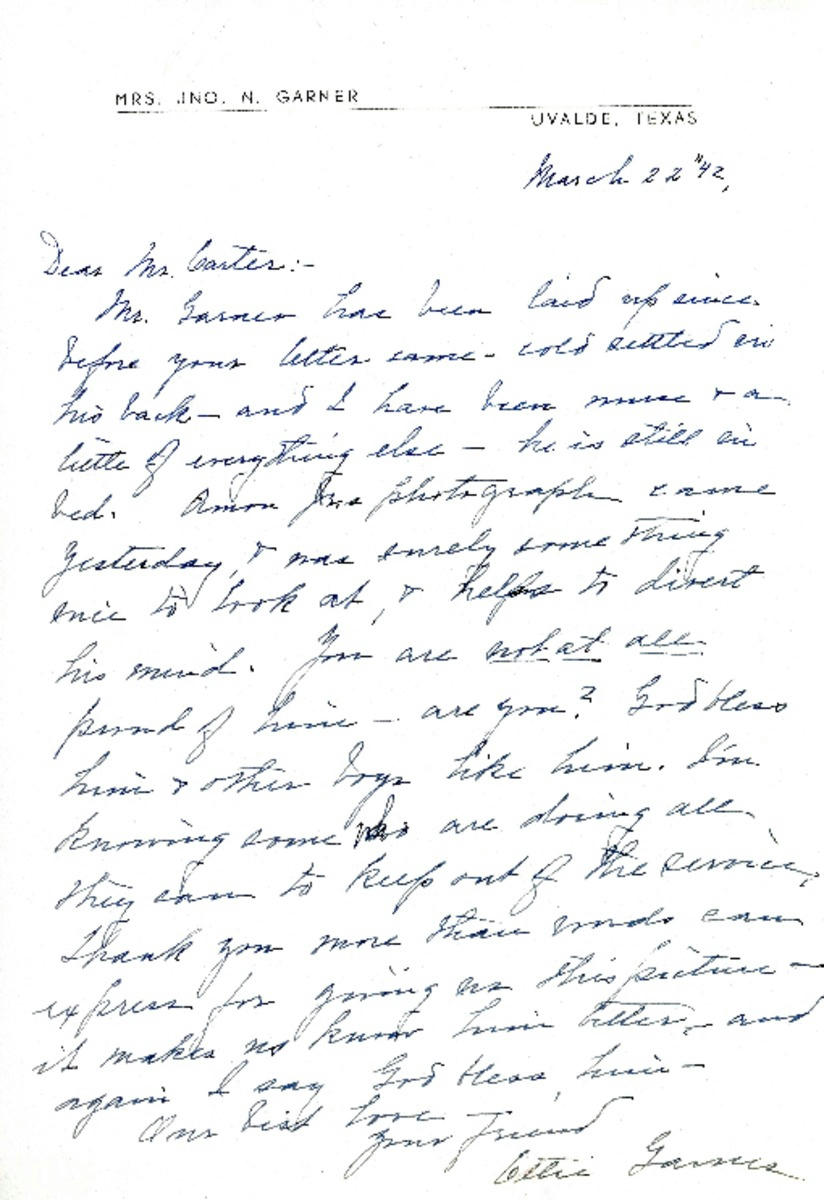 MRS. JNO. N. GARNER
UVALDE, TEXAS
March 22" 42,
Dear Mr. Carter:-
Mr. Garner has been laid up since
before your letter came - cold settled in
his back - and I have been nurse & a
little of everything else - he is still in
bed. Amon Jrs photograph came
yesterday, & was surely some thing
nice to look at, & helps to divert
his mind. You are not at all
proud of him - are you? God bless
him & other boys like him. I'm
knowing some who are doing all
they can to keep out of the service,
Thank you more than words can
express for giving us this picture -
it makes us know him better, - and
again I say God bless him -
Our best love -
Your friend
Ettie Garner